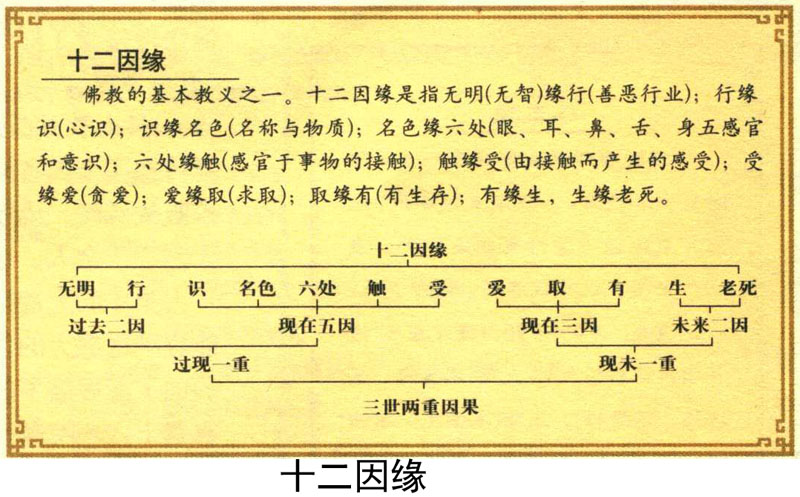 十二因缘
佛教的基本教义之一。十二因缘是指无明(无智)缘行(善恶行业)；行缘
识(心识)；识缘名色(名称与物质)；名色缘六处(眼、耳、鼻、舌、身五感官
和意识)；六处缘触(感官于事物的接触)；触缘受(由接触而产生的感受)；受
缘爱(贪爱)；爱缘取(求取)；取缘有(有生存)；有缘生，生缘老死。
十二因缘
无明 行 识 名色 六处 触 受 爱 取 有 生 老死
过去二因 现在五因 现在三因 未来二因
过现一重 现未一重
三世两重因果
十二因缘